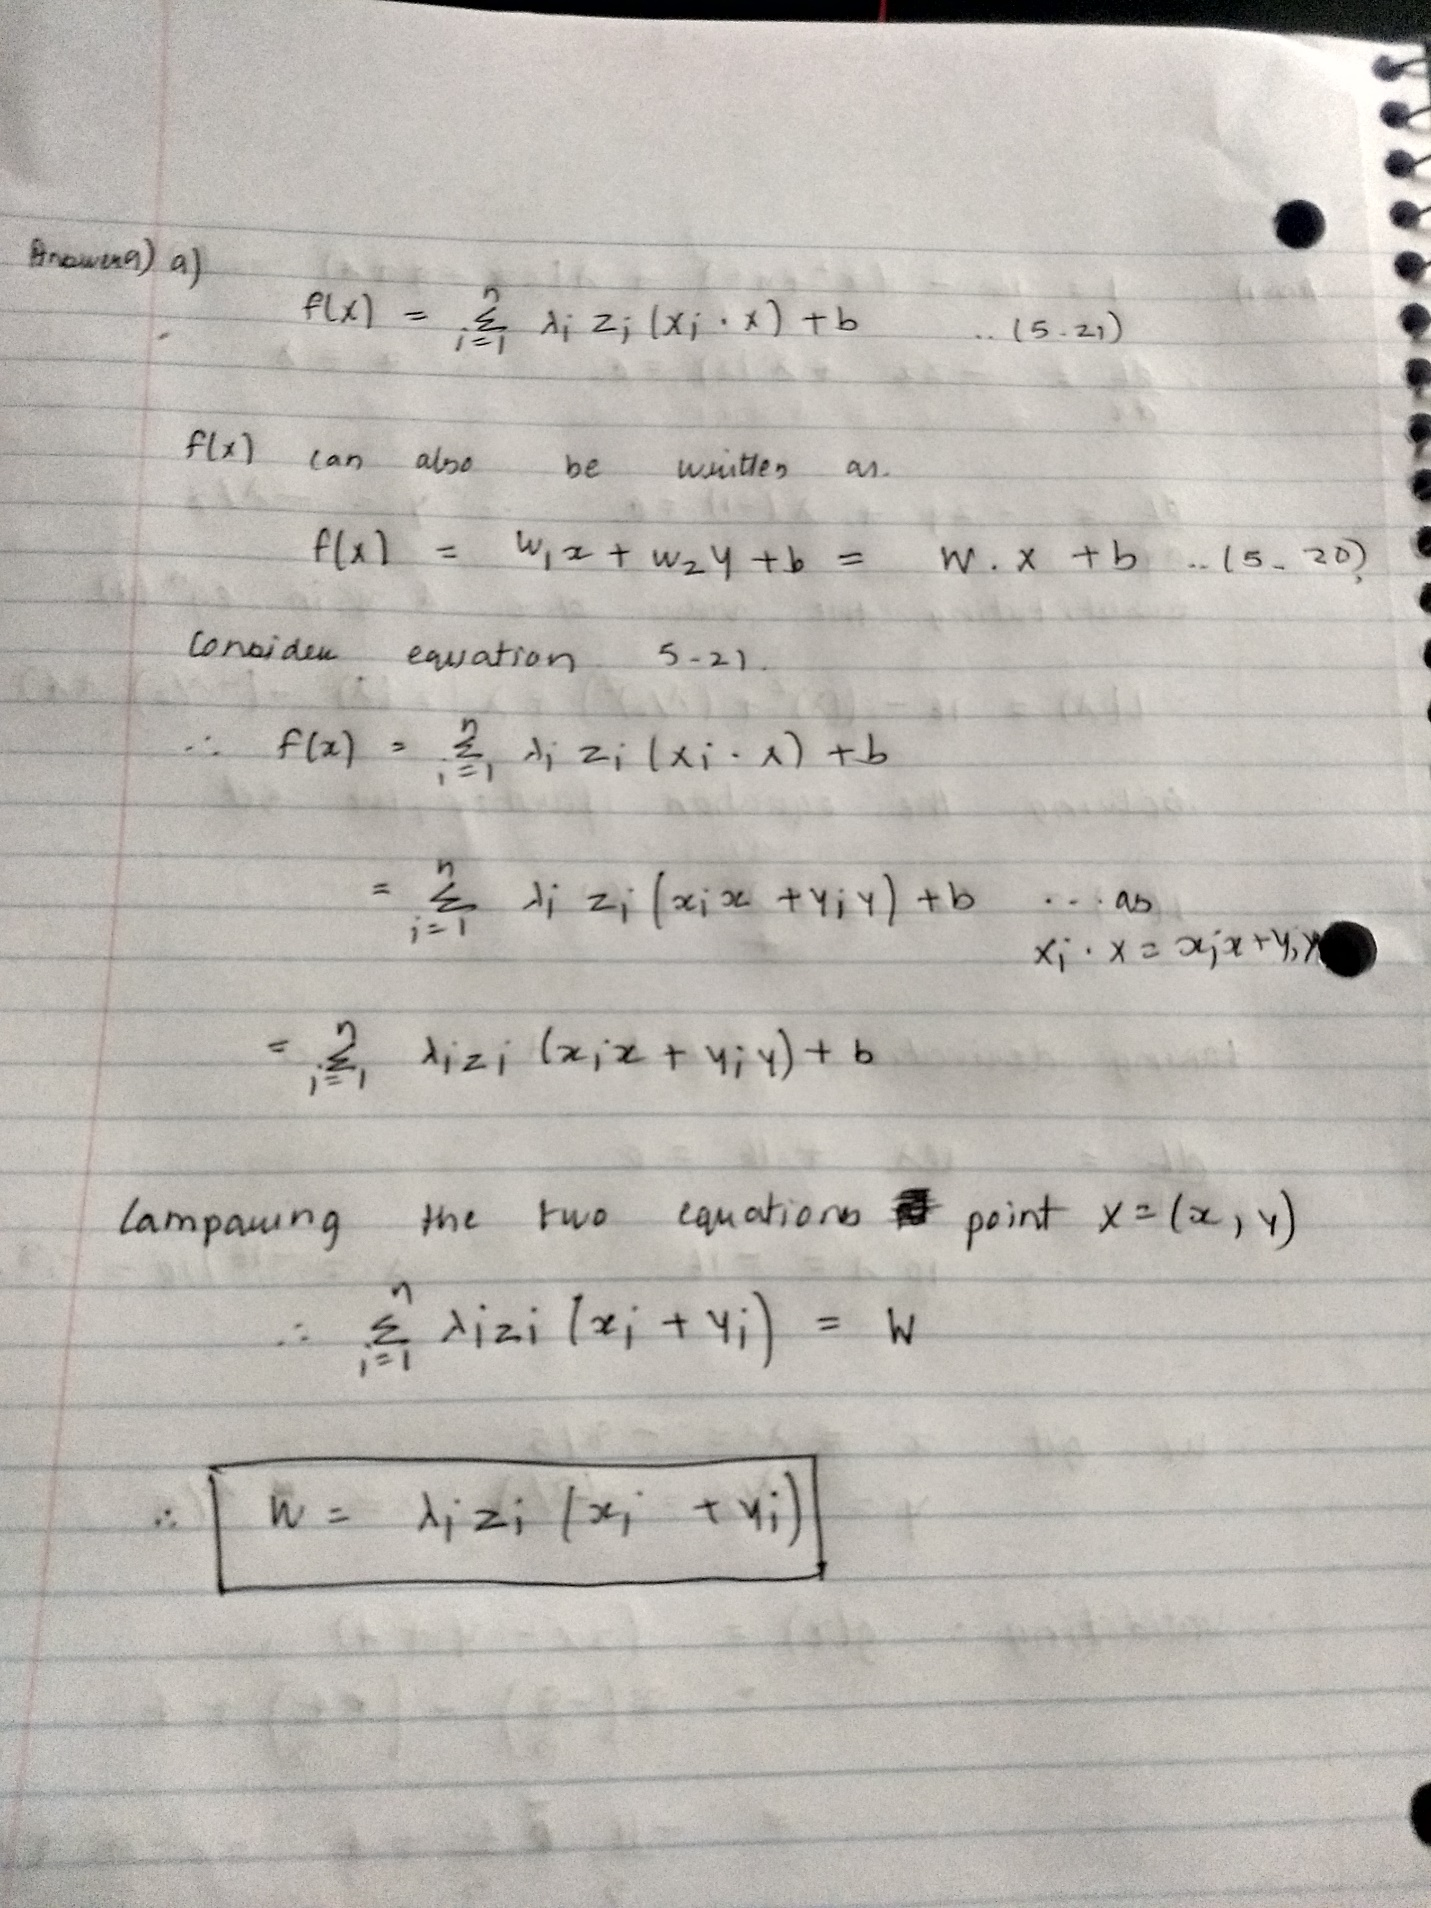 Answer 9) a)
f(x) = Σ_{i=1}^{n} λi zi (xi . x) + b .. (5.21)
f(x) can also be written as.
f(x) = w₁x + w₂y + b = W . X + b .. (5. 20)
Consider equation 5.21.
∴ f(x) = Σ_{i=1}^{n} λi zi (xi . x) + b
= Σ_{i=1}^{n} λi zi (xi x + yi y) + b ... as
xi . x = xi x + yi y
= Σ_{i=1}^{n} λi zi (xi x + yi y) + b
Comparing the two equations point X = (x, y)
∴ Σ_{i=1}^{n} λi zi (xi + yi) = W
∴ W = λi zi (xi + yi)